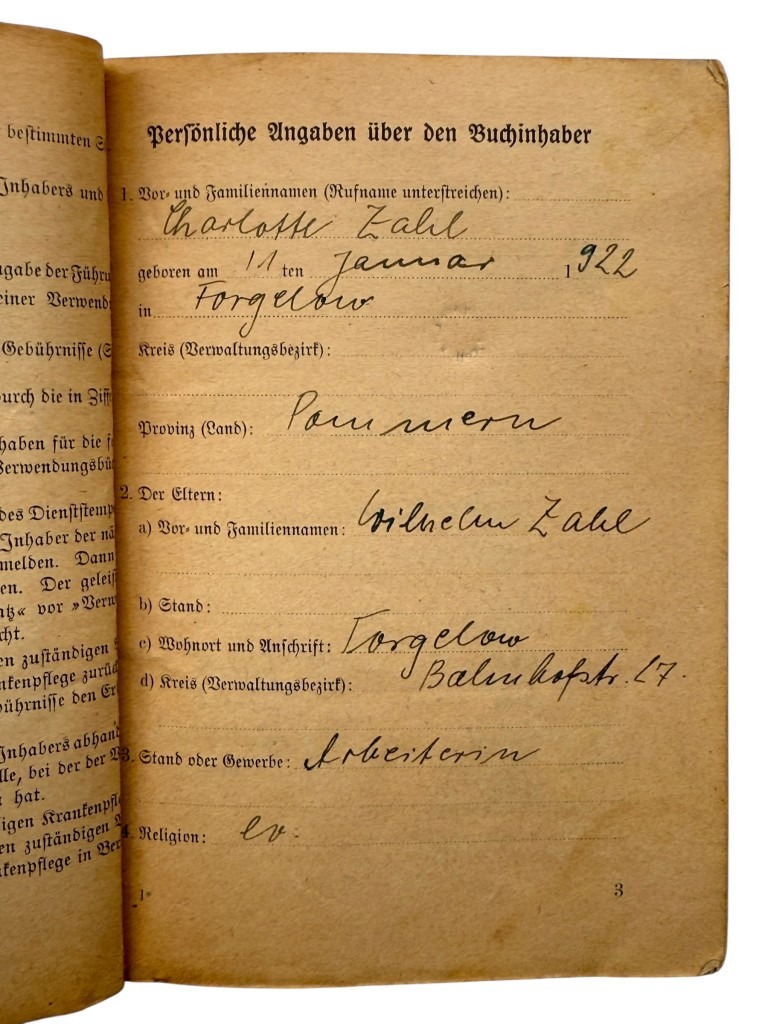 bestimmten S
Inhabers und
gabe der Führu
einer Verwend
Gebührnisse (S
durch die in Ziff
haben für die f
Verwendungsbü
des Dienststemp
Inhaber der nä
melden. Dann
en. Der geleis
atz« vor »Verw
cht.
en zuständigen
nkenpflege zurüc
bührnisse den Er
Inhabers abhand
lle, bei der der V
n hat.
igen Krankenpfl
en zuständigen
kenpflege in Ber
Persönliche Angaben über den Buchinhaber
1. Vor- und Familiennamen (Rufname unterstreichen):
Charlotte Zahl
geboren am 11 ten Januar 1922
in Torgelow
Kreis (Verwaltungsbezirk):
Provinz (Land): Pommern
2. Der Eltern:
a) Vor- und Familiennamen: Wilhelm Zahl
b) Stand:
c) Wohnort und Anschrift: Torgelow
d) Kreis (Verwaltungsbezirk): Bahnhofstr. 27.
3. Stand oder Gewerbe: Arbeiterin
4. Religion: ev.
1*
3